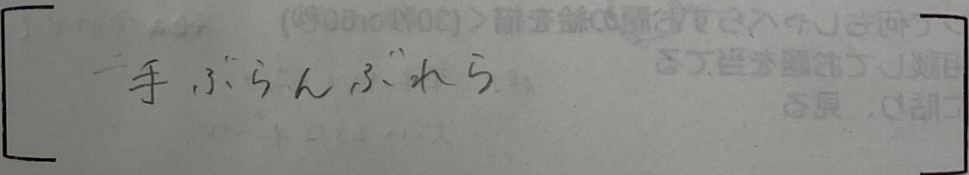 手ぶらんぶれら